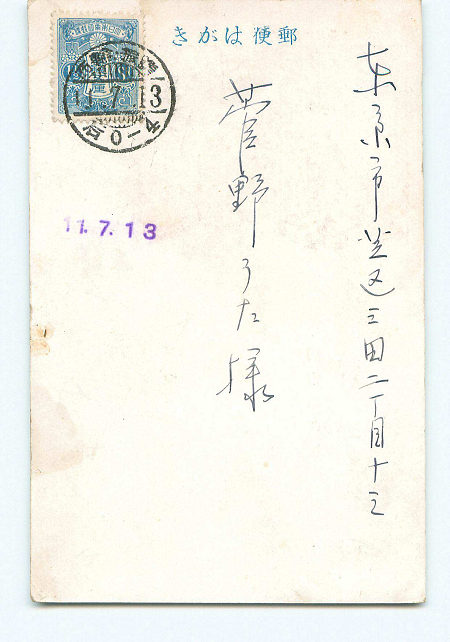 きがは便郵
東京市芝区三田二丁目十三
菅野うた様
11.7.13